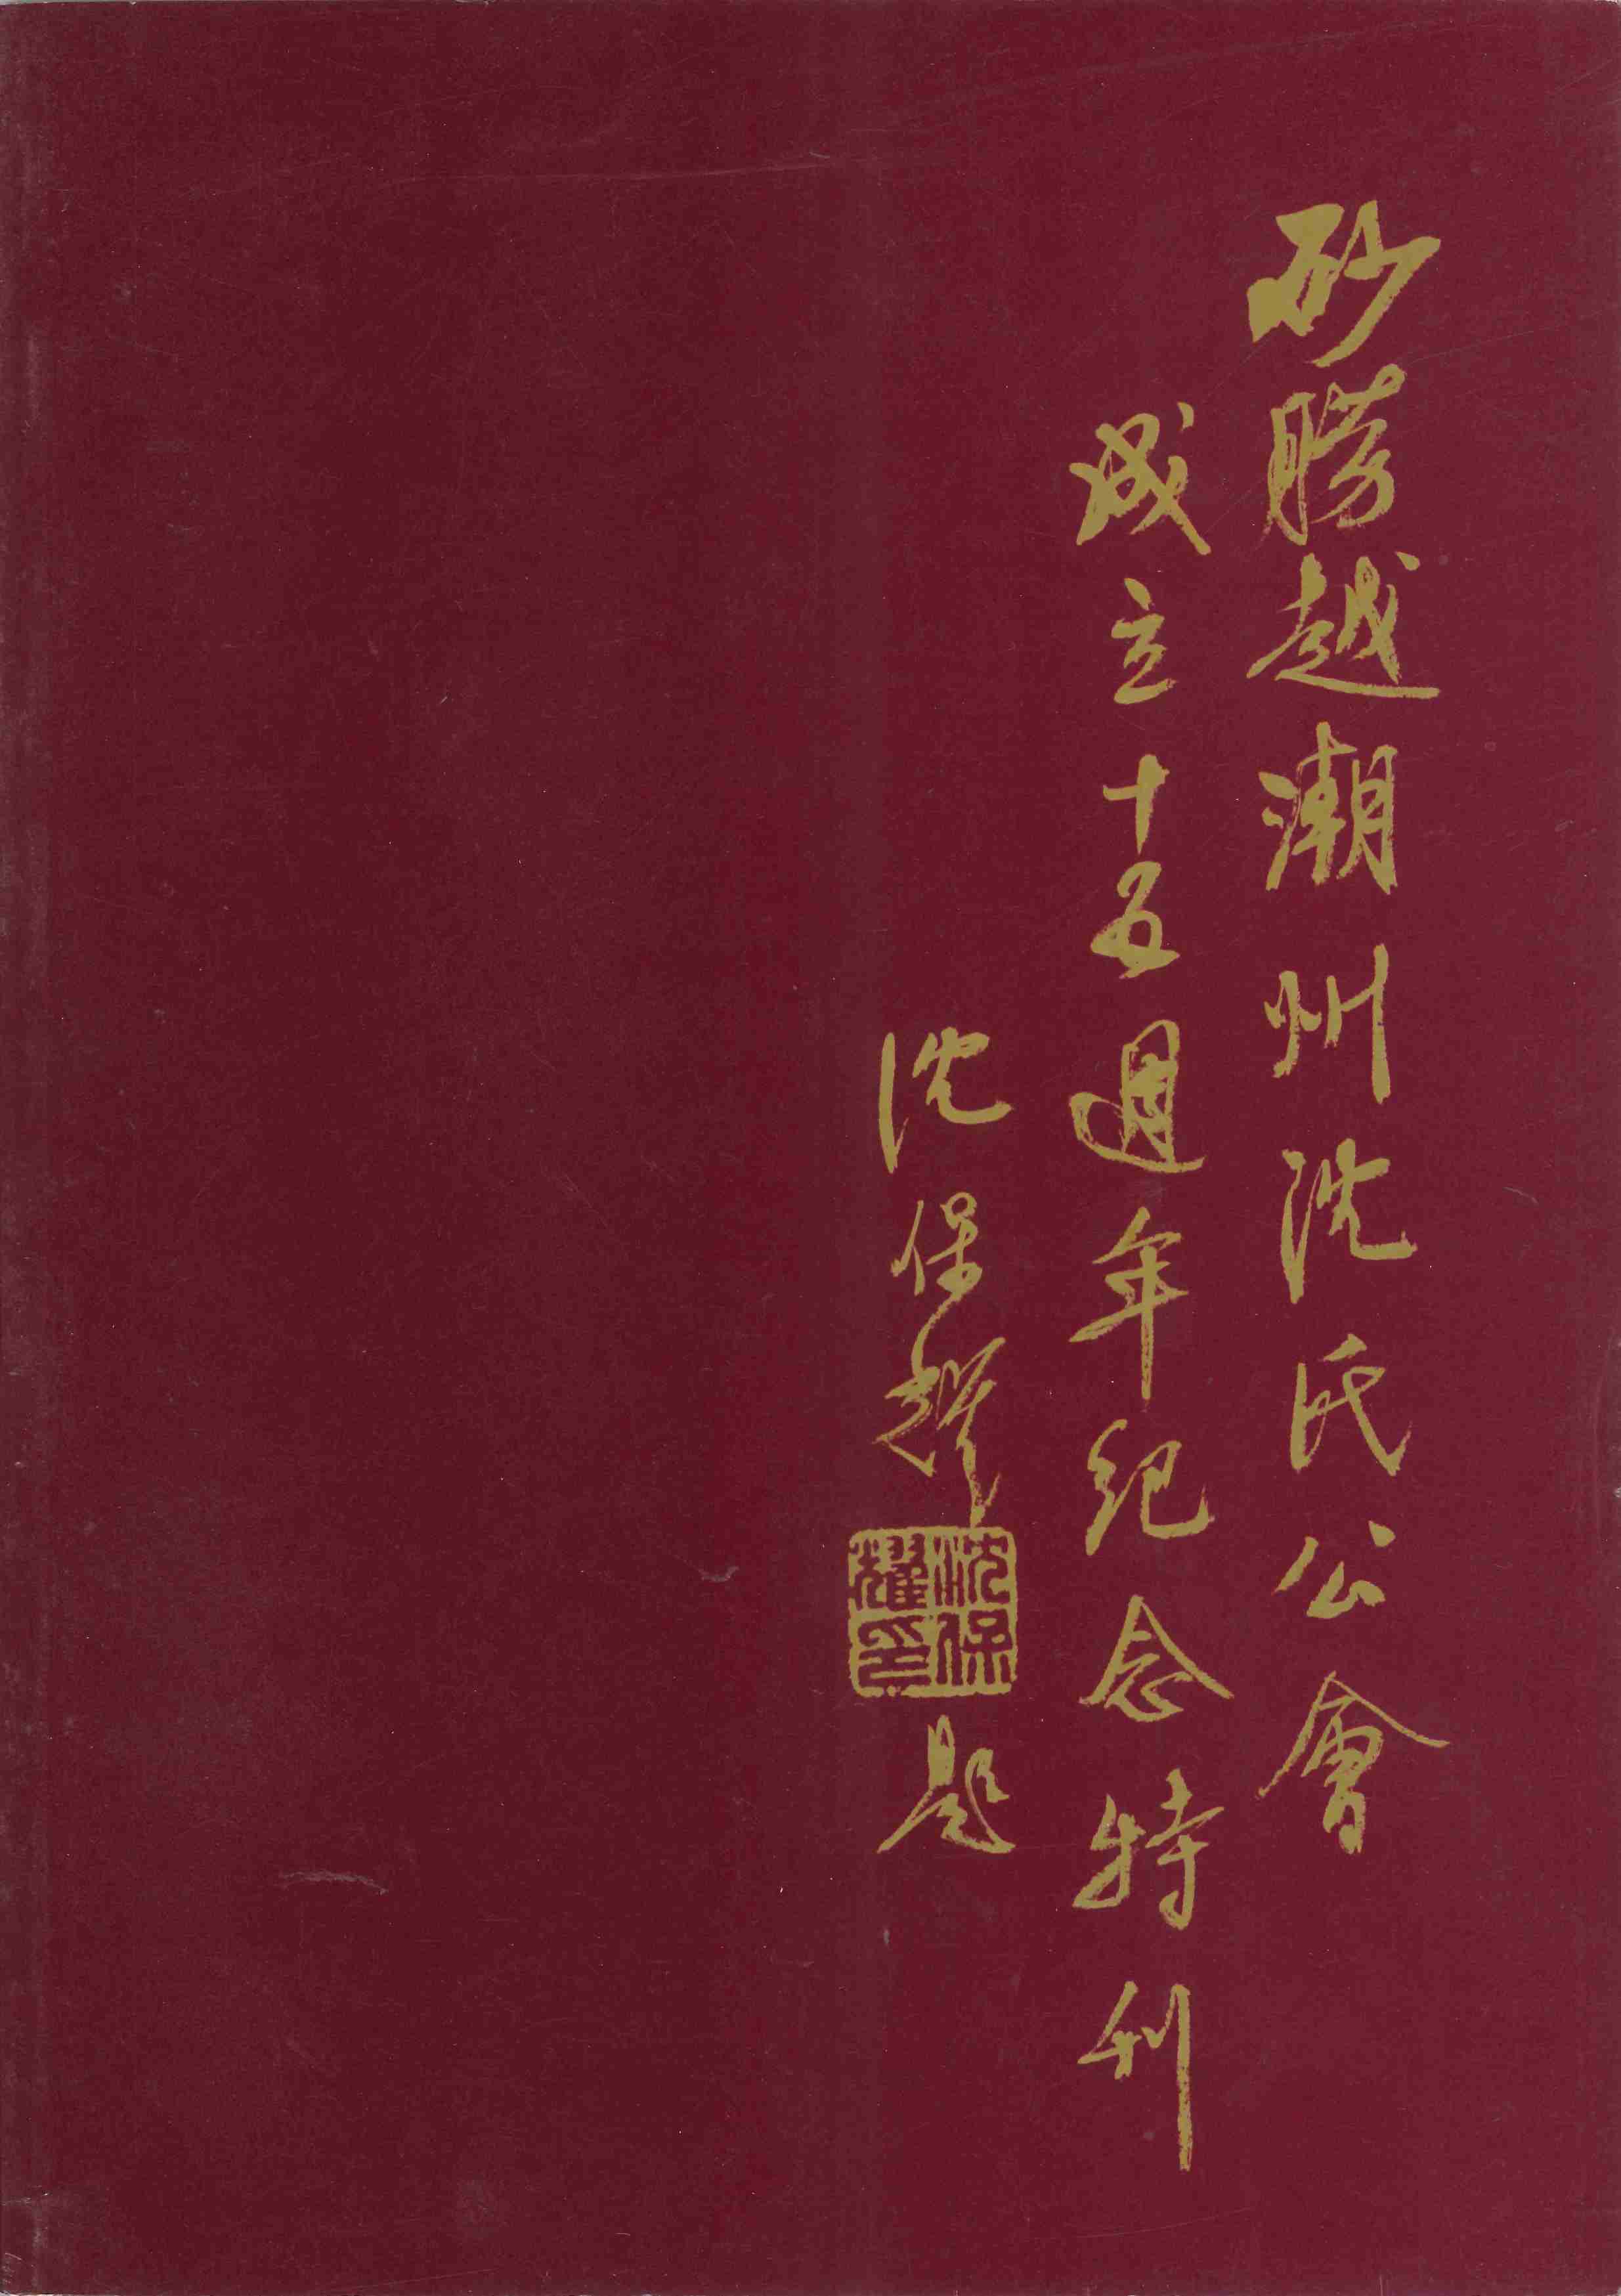 砂朥越潮州沈氏公會
成立十五週年紀念特刊
沈保耀題
沈保耀印